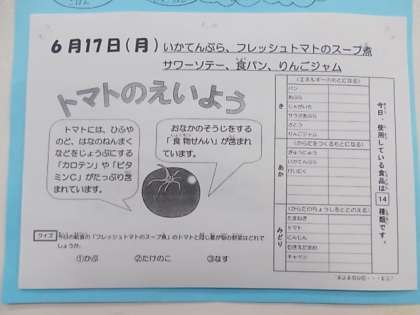 6月17日(月) いかてんぷら、フレッシュトマトのスープ煮
サワーソテー、食パン、りんごジャム
トマトのえいよう
トマトには、ひふや
のど、はなのねんまく
などをじょうぶにする
「カロテン」や「ビタ
ミンC」がたっぷり含ま
れています。
おなかのそうじをする
「食物せんい」が含まれ
ています。
クイズ 今日の給食の「フレッシュトマトのスープ煮」のトマトと同じ夏が旬の野菜はどれで
しょうか。
①かぶ ②たけのこ ③なす
今日、使用している食品は14種類です。
き
(エネルギーのもとになる)
パン
あぶら
じゃがいも
サラダあぶら
さとう
りんごジャム
あか
(からだをつくるもとになる)
ぎゅうにゅう
いかてんぷら
とりにく
みどり
(からだのちょうしをととのえる)
たまねぎ
トマト
にんじん
むきえだまめ
キャベツ